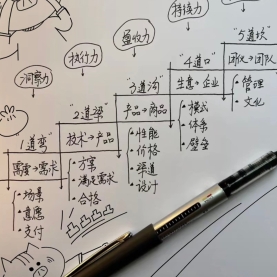 洞察力
执行力
整合力
持接力
"1道弯"
需要→需求
·场景
·意愿
·支付
"2道梁"
技术→产品
·方案
·满足需求
·合格
"3道沟"
产品→商品
·性能
·价格
·渠道
·设计
"4道口"
生意→企业
·模式
·体系
·壁垒
"5道坎"
团伙→团队
·管理
·文化